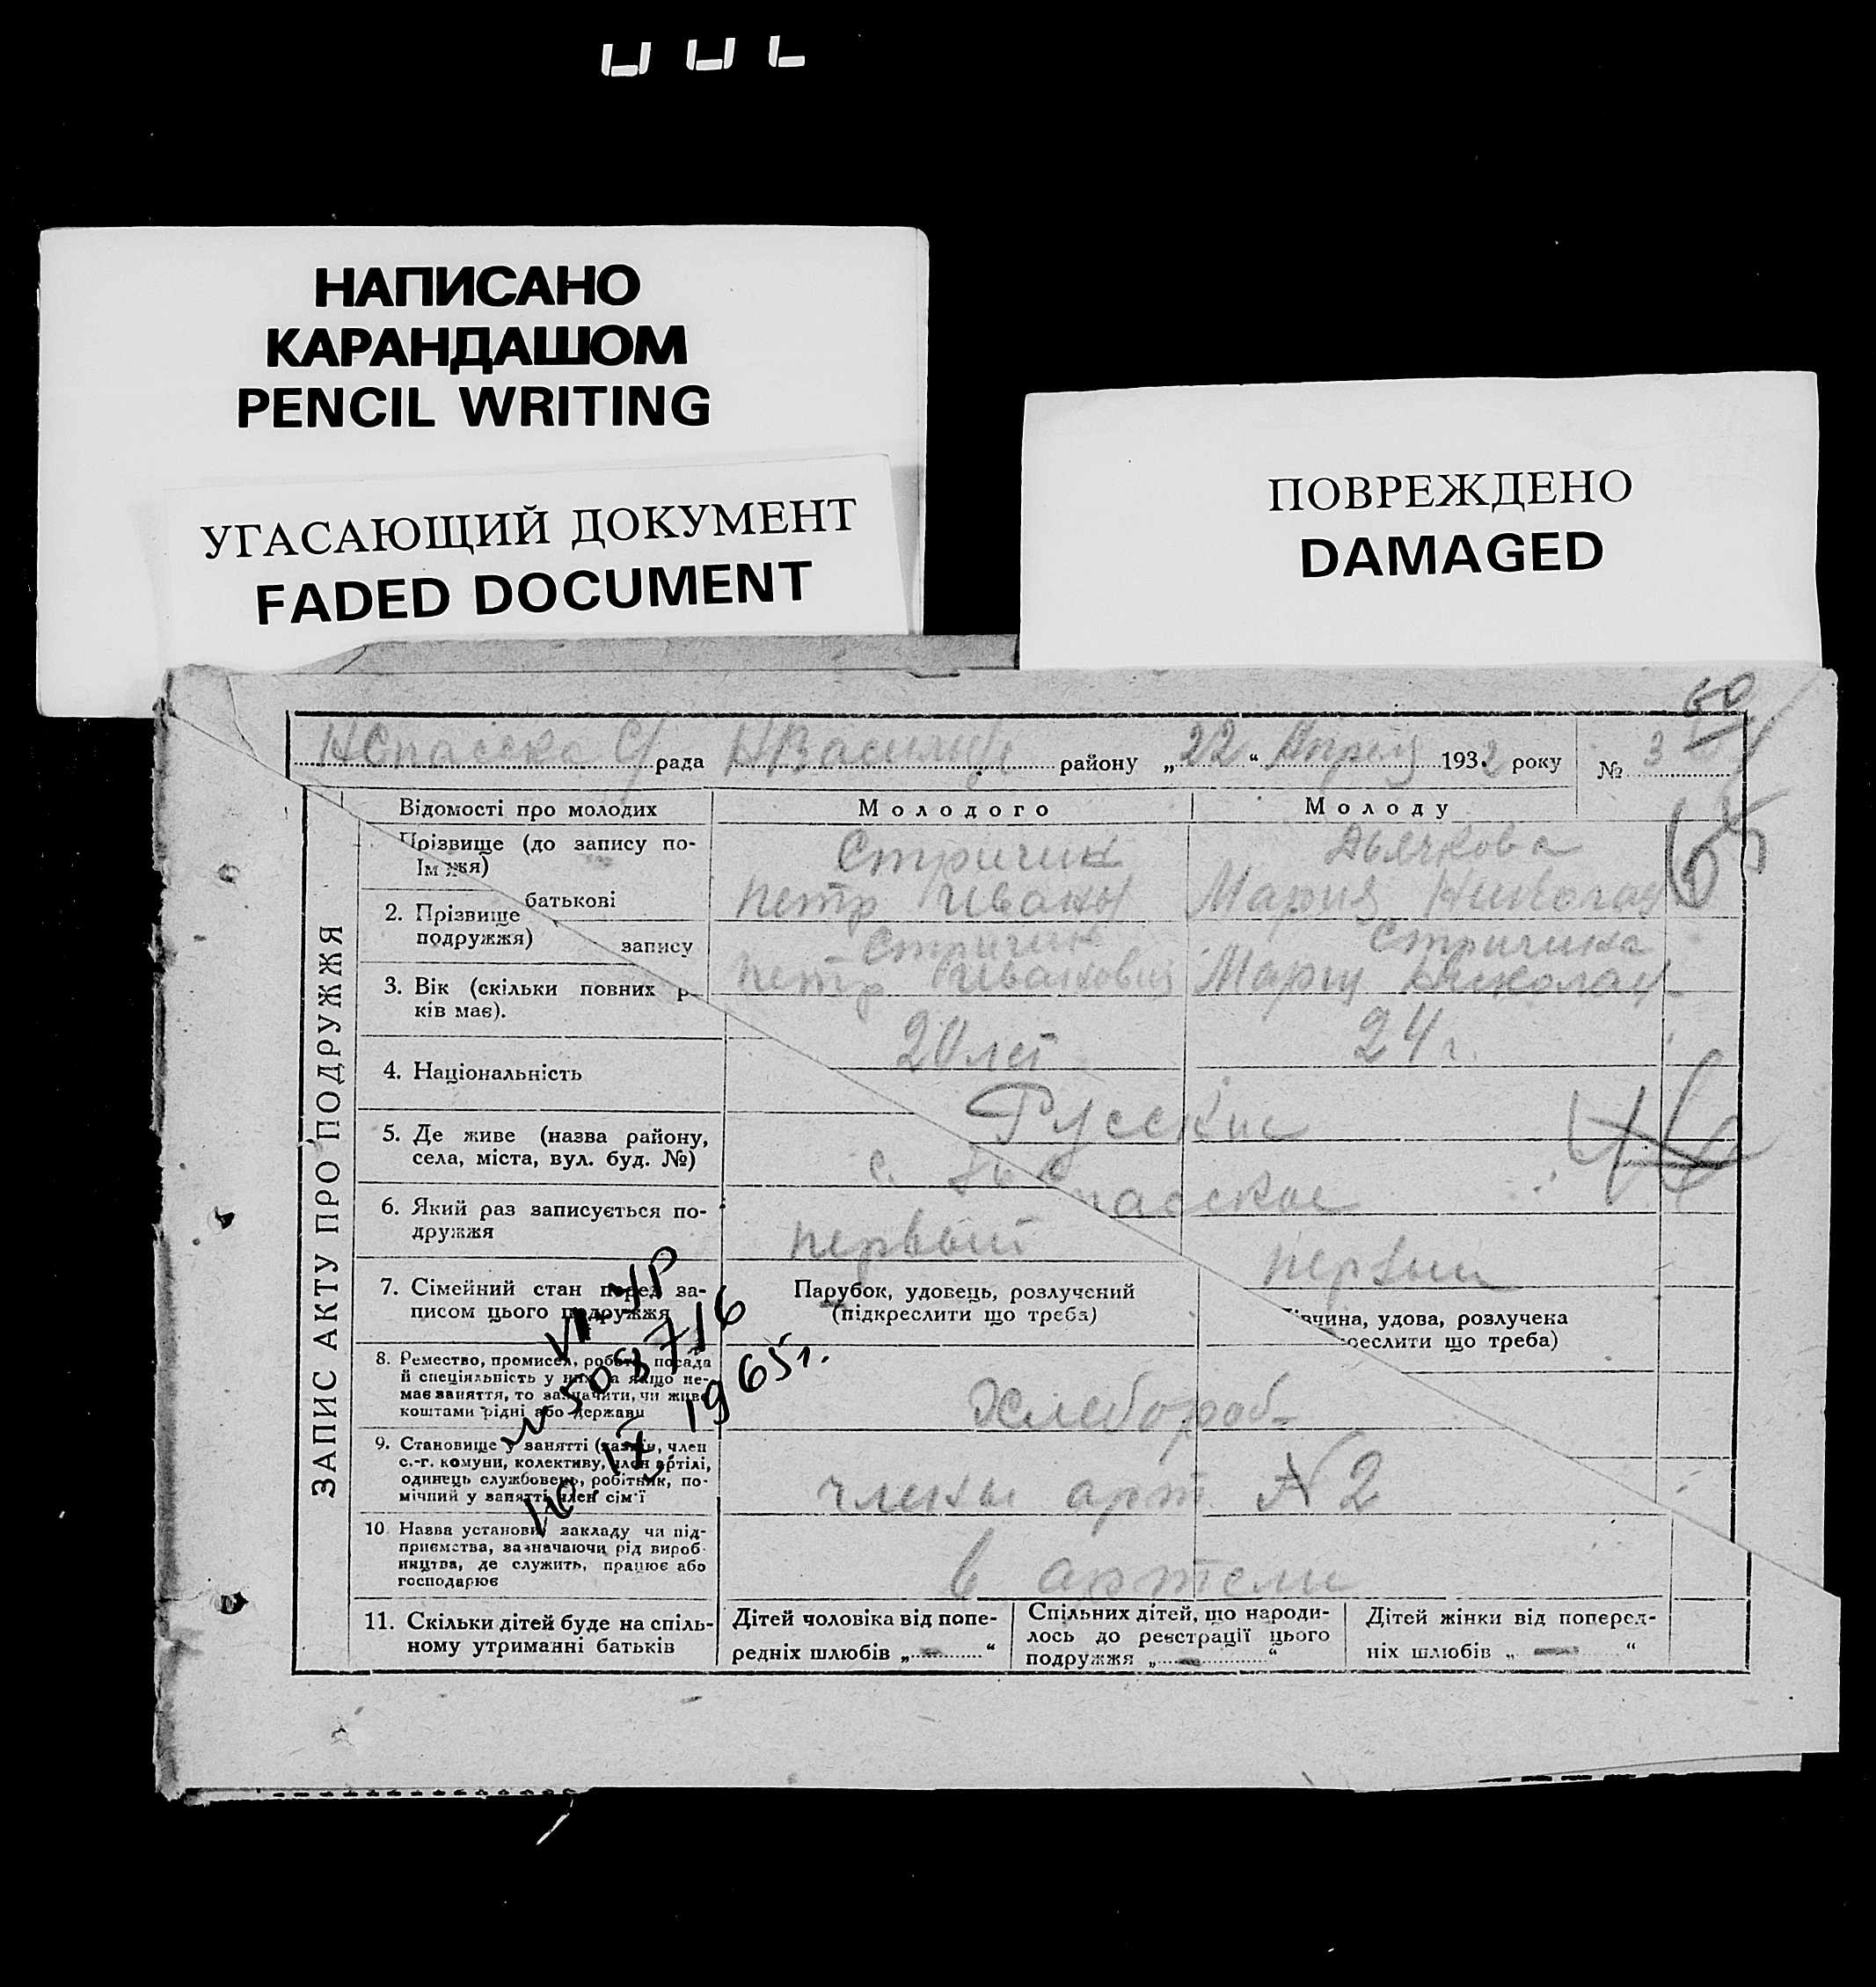 НАПИСАНО
КАРАНДАШОМ
PENCIL WRITING
УГАСАЮЩИЙ ДОКУМЕНТ
FADED DOCUMENT
ПОВРЕЖДЕНО
DAMAGED
60
НСпасска С/рада НВасильев району „22“ Апреля 1932 року № 3
ЗАПИС АКТУ ПРО ПОДРУЖЖЯ
Відомості про молодих Молодого Молоду
Прізвище (до запису по- Стричик Дьячкова
Ім жя) батькові Петр Иваны Мария Николаи
2. Прізвище
подружжя) запису Стричик Стричика
Петр Иванович Мария Николаи
3. Вік (скільки повних р-
ків має). 20 лет 24 г.
4. Національність Русские
5. Де живе (назва району,
села, міста, вул. буд. №) с. пасское
6. Який раз записується по-
дружжя первый первый
7. Сімейний стан перед за-
писом цього подружжя
Парубок, удовець, розлучений
(підкреслити що треба)
івчина, удова, розлучека
реслити що треба)
8. Ремество, промисел, робота, посада
й спеціяльність у них, а якщо не-
має заняття, то зазначити, чи живе
коштами рідні або держави
Хлебороб
9. Становище у занятті (хазяїн, член
с.-г. комуни, колективу, член артілі,
одинець службовець, робітник, по-
мічний у занятті член сім'ї
члены арт. N 2
10 Назва установи, закладу чи під-
приємства, зазначаючи рід вироб-
ництва, де служить, працює або
господарює
в артели
11. Скільки дітей буде на спіль-
ному утриманні батьків
Дітей чоловіка від попе-
редніх шлюбів „—“
Спільних дітей, що народи-
лось до реєстрації цього
подружжя „—“
Дітей жінки від поперед-
ніх шлюбів „—“
VI УР
N 508716
1965 г.